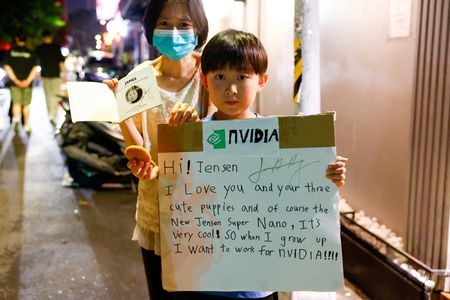 JAMES
NVIDIA
Hi! Jensen
I Love you and your three
cute puppies and of course the
New Jensen Super Nano, It's
very cool! SO when I grow up
I want to work for NVIDIA!!!!